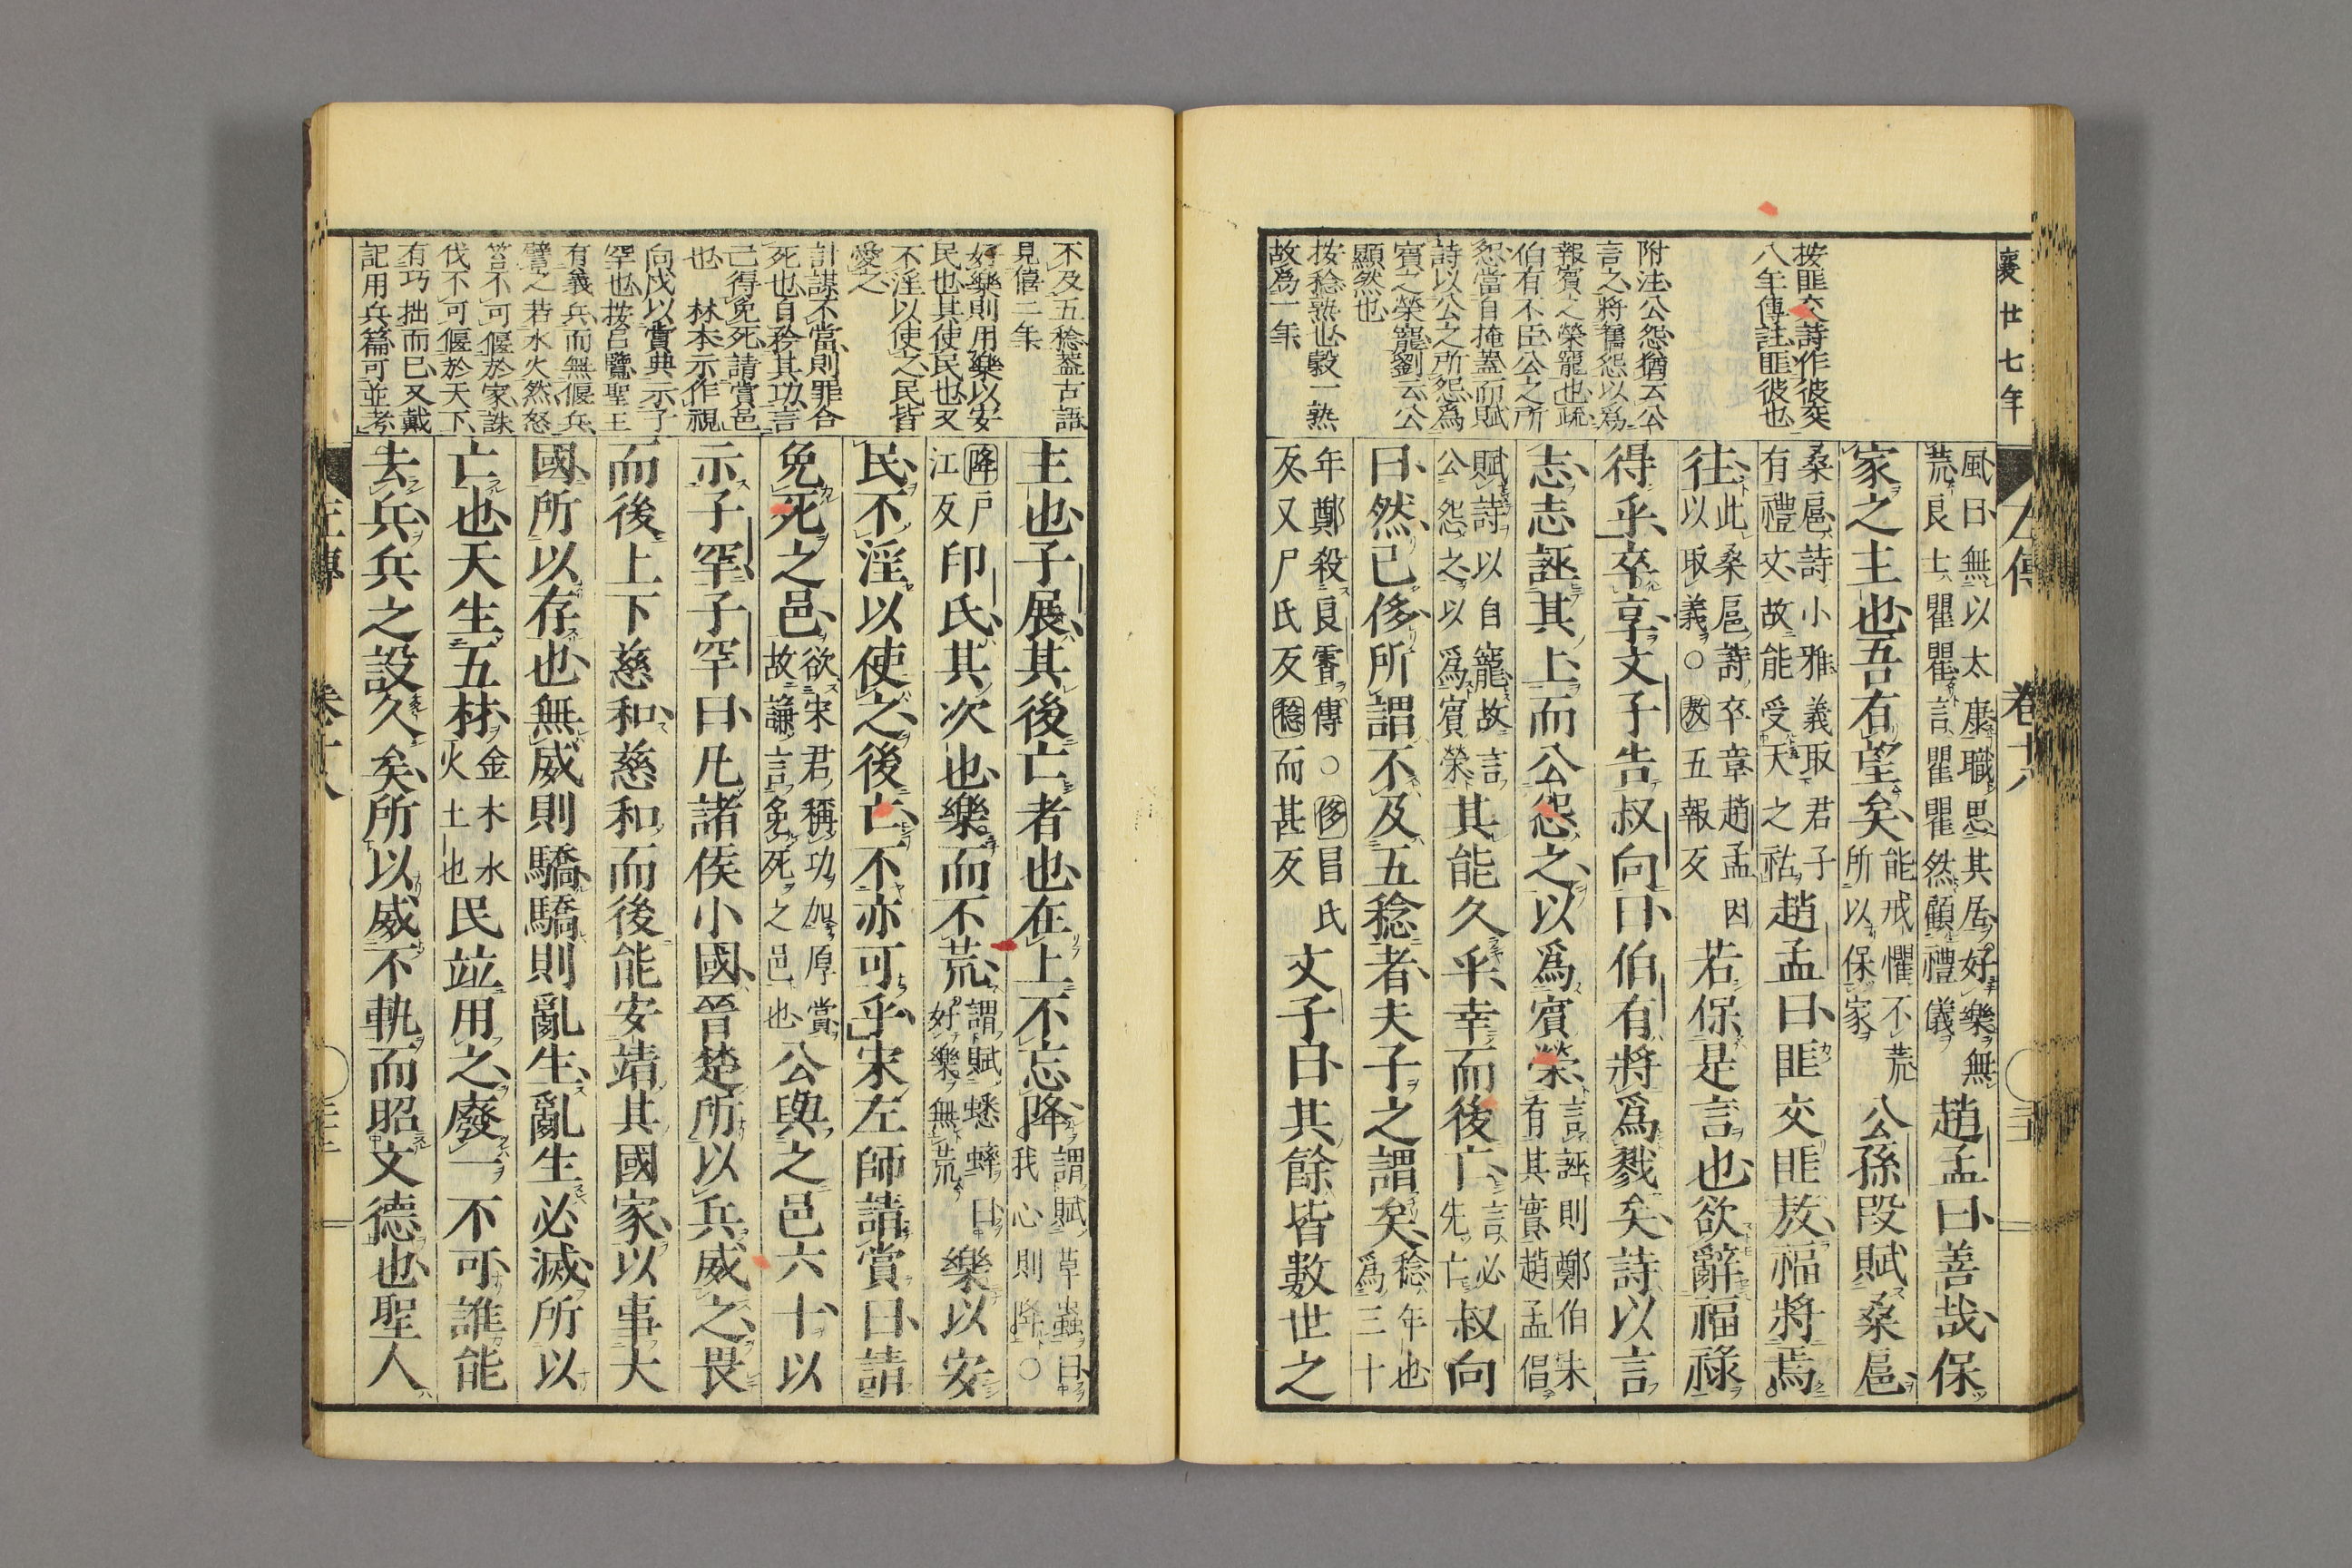 襄廿七年
左傳 卷十八
按匪交詩作彼交
八年傳註匪彼也
附注公怨猶云公
言之將舊怨以爲
報賓之榮寵也疏
伯有不臣公之所
怨當自掩蓋而賦
詩以公之所怨爲
賓之榮寵劉云公
顯然也
按稔熟也穀一熟
故爲一年
風曰無以太康職思其居好樂無
荒良士瞿瞿言瞿瞿然顧禮儀
趙孟曰善哉保
家之主也吾有望矣
能戒懼不荒
所以保家
公孫段賦桑扈
桑扈詩小雅義取君子
有禮文故能受天之祜
趙孟曰匪交匪敖福將焉
往
此桑扈詩卒章趙孟因
以取義○敖五報反
若保是言也欲辭福祿
得乎卒享文子告叔向曰伯有將爲戮矣詩以言
志志誣其上而公怨之以爲賓榮
言誣則鄭伯未
有其實趙孟倡
賦詩以自寵故言
公怨之以爲賓榮
其能久乎幸而後亡
言必
先亡
叔向
曰然已侈所謂不及五稔者夫子之謂矣
稔年也
爲三十
年鄭殺良霄傳○侈昌氏
反又尸氏反稔而甚反
文子曰其餘皆數世之
不及五稔蓋古語
見僖二年
好樂則用樂以安
民也其使民也又
不淫以使之民皆
愛之
計謀不當則罪合
死也自矜其功言
己得免死請賞邑
也 林本示作視
向戌以賞典示子
罕也按呂覽聖王
有義兵而無偃兵
譬之若水火然怒
笞不可偃於家誅
伐不可偃於天下
有巧拙而已又戴
記用兵篇可並考
主也子展其後亡者也在上不忘降
謂賦草蟲曰
我心則降○
降戶
江反
印氏其次也樂而不荒
謂賦蟋蟀曰
好樂無荒
樂以安
民不淫以使之後亡不亦可乎宋左師請賞曰請
免死之邑
欲宋君稱功加厚賞
故謙言免死之邑也
公與之邑六十以
示子罕子罕曰凡諸侯小國晉楚所以兵威之畏
而後上下慈和慈和而後能安靖其國家以事大
國所以存也無威則驕驕則亂生亂生必滅所以
亡也天生五材
金木水
火土也
民並用之廢一不可誰能
去兵兵之設久矣所以威不軌而昭文德也聖人
左傳 卷十八